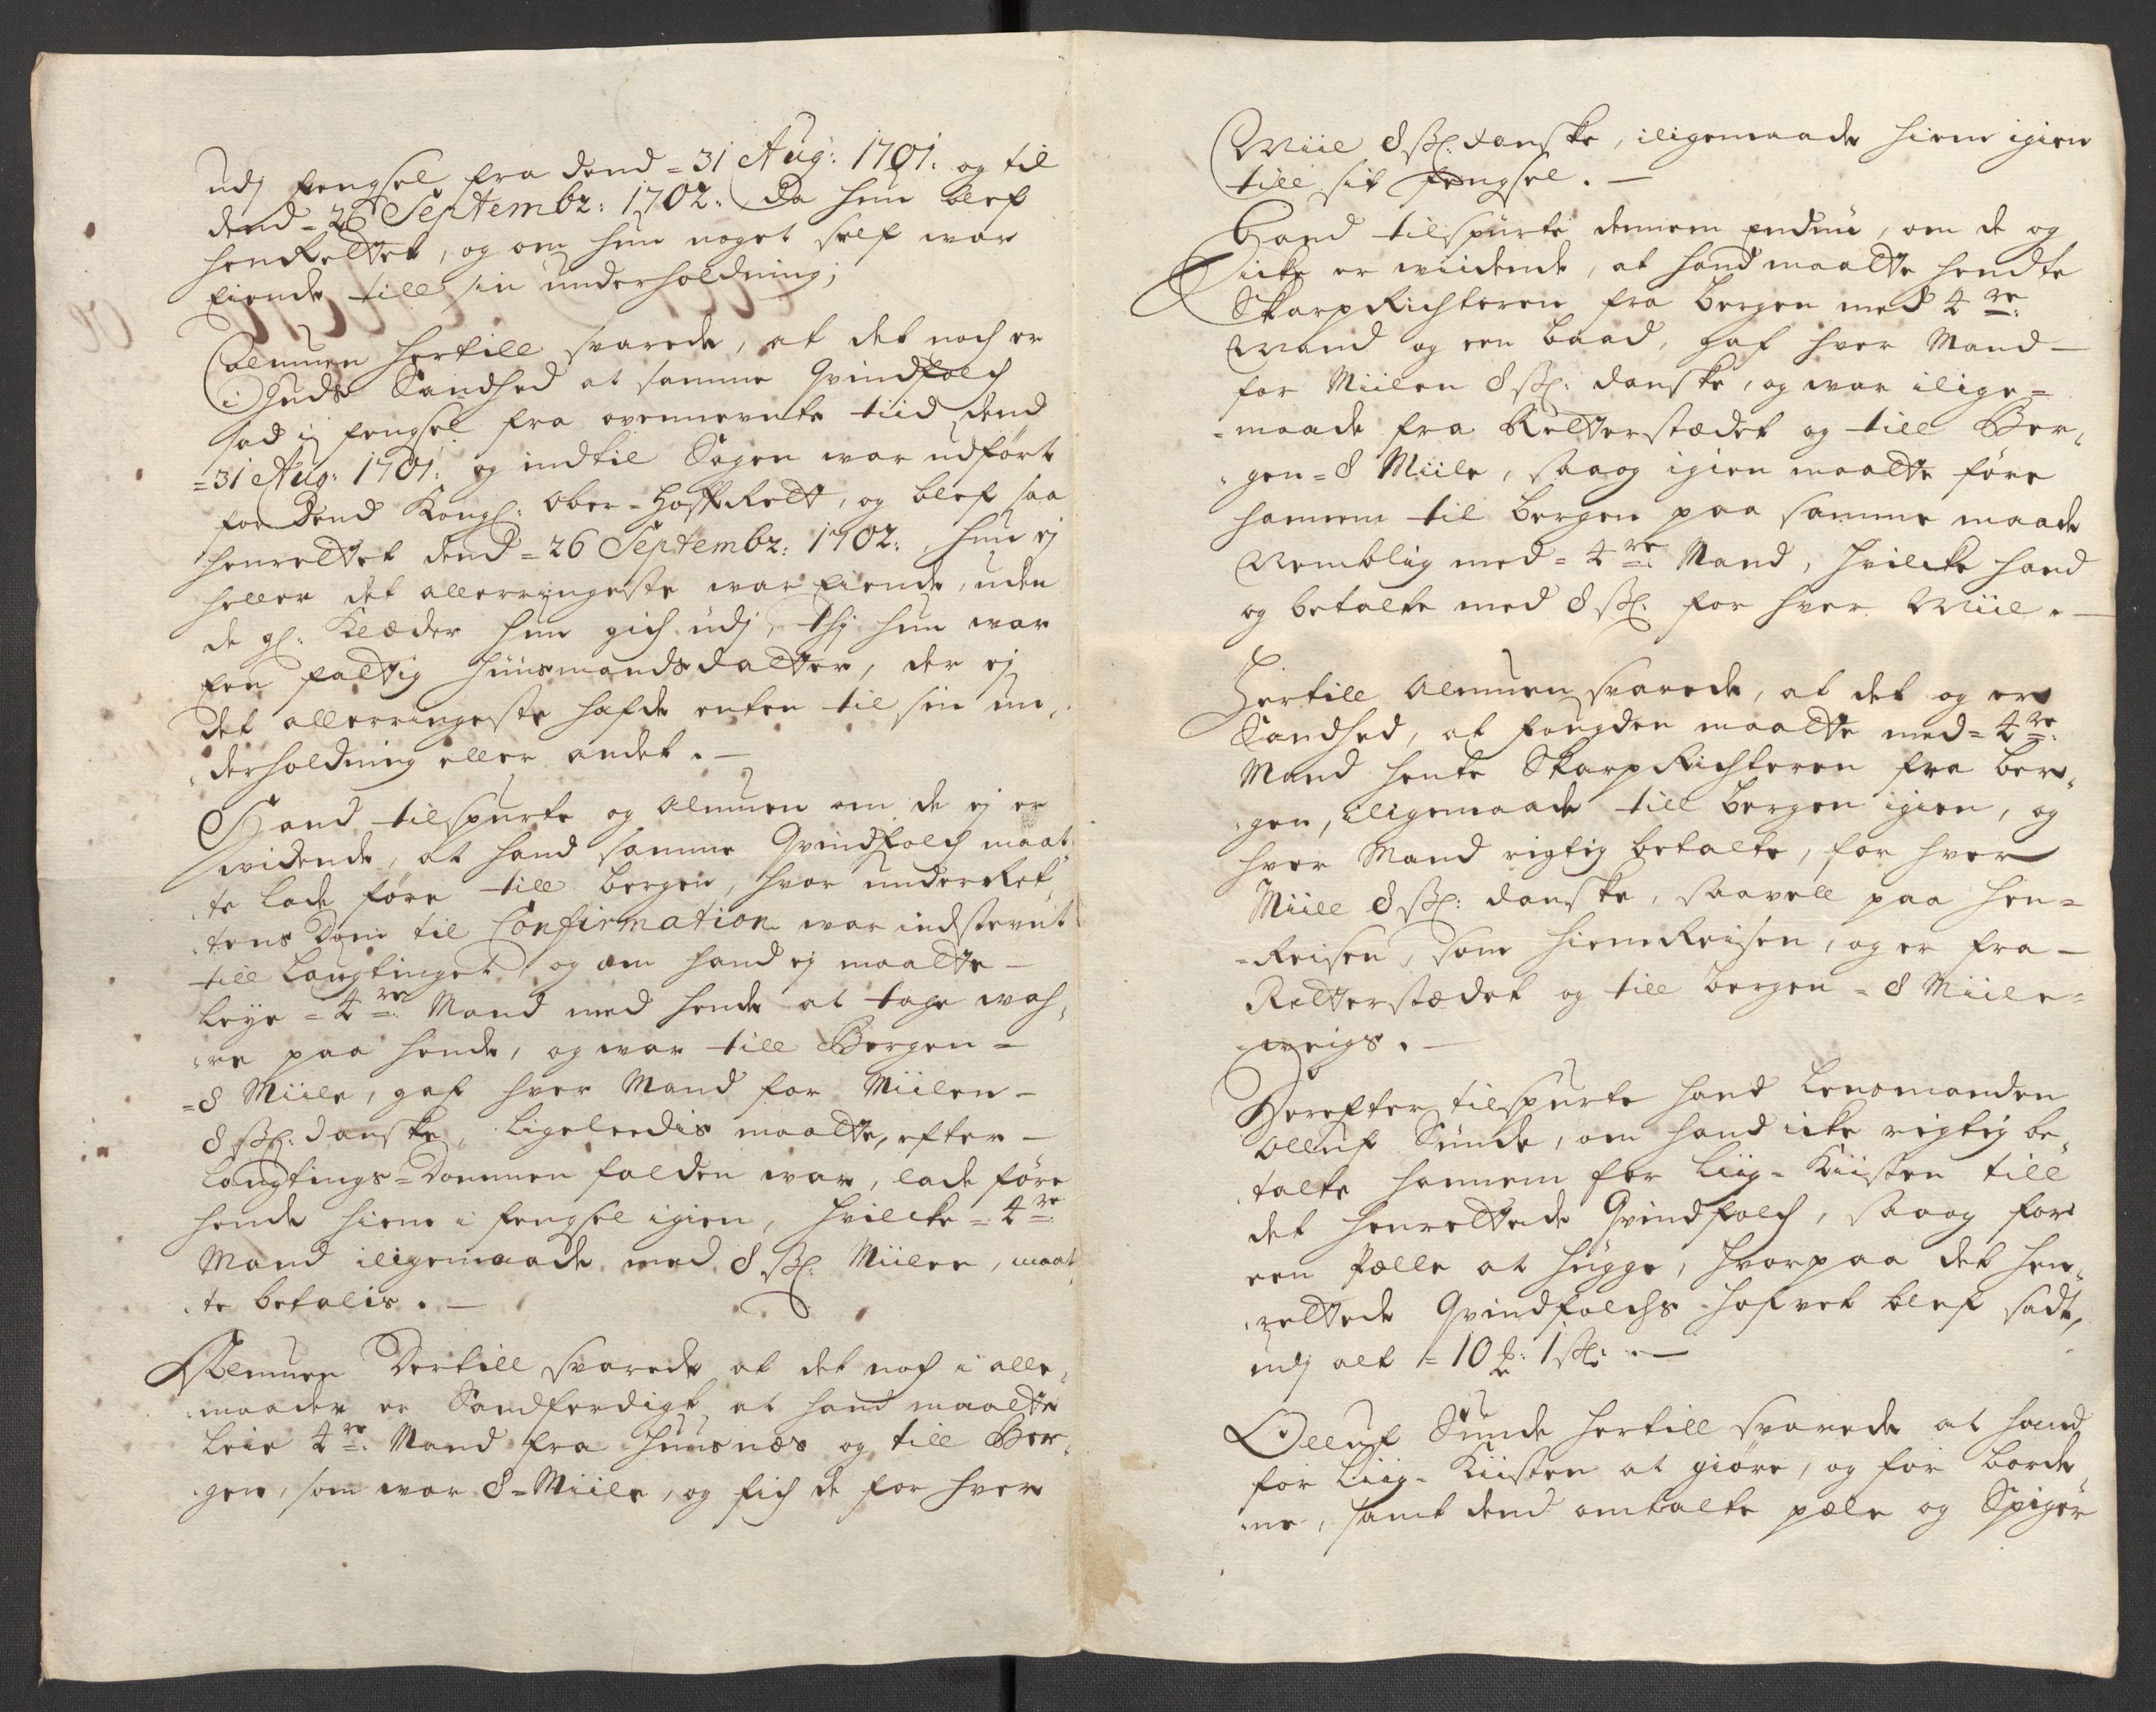 udj fengsel fra dend = 31 Aug: 1701: og til
dend = 26 Septembr: 1702: Da hun blef
henRettet, og om hun noget self war
Eiende till sin underholdning;
Almuen hertill svarede, at det noch er
i Guds Sandhed at samme Qvindfolch
sad i fengsel fra ovennevnte tiid dend
= 31 Aug: 1701: og indtil Sagen war udført
for Dend Kongl: Ober-HoffRett, og blef saa
henrettet dend = 26 Septembr: 1702: hun ej
heller det allerringeste war Eiende, uden
de gl: Klæder hun gich udj, thj hun war
Een fattig huusmandsdatter, der ej
det allerringeste hafde enten til sin un,
,derholdning eller andet. —
Hand tilspurte og Almuen om de ej er
widende, at hand samme Qvindfolch maat,
,te lade føre till bergen, hvor underRet,
,tens Dom til Confirmation war indstevnt
till laugtinget og om hand ej maatte —
leye = 4re: Mand med hende at tage wah,
,re paa hende, og war till Bergen =
= 8 Miile, gaf hver Mand for Miilen —
8 ß: danske, ligeleedis maatte, efter —
laugtings = Dommen falden war, lade føre
hende hiem i fengsel igien, hvilcke = 4re:
Mand iligemaade med 8 ß: Miilen, maat,
,te betalis. —
Almuen Dertill svarede at det noch i alle,
,maader er Sandferdigt at hand maatte
leie 4re: Mand fra huusnæs og till Ber,
,gen, som war 8 = Miile, og fich de for hver
Miil 8 ß: danske, iligemaade hiem igien
till sit fengsel. —
Hand tilspurte dennem Endnu, om de og
icke er wiidende, at hand maatte hendte
SkarpRichteren fra bergen med 4re:
Mand og een baad, gaf hver Mand —
for Miilen 8 ß: danske, og war ilige =
= maade fra Retterstædet og till Ber,
,gen = 8 Miile, saa og igien maatte føre
hannem til bergen paa samme maade
Nemblig med = 4re: Mand, hvilcke hand
og betalte med 8 ß: for hver Miil. —
Hertill Almuen svarede, at det og er
Sandhed, at fougden maatte med = 4re:
Mand hente SkarpRichteren fra ber,
,gen, iligemaade till bergen igien, og
hver Mand rigtig betalte, for hver
Miill 8 ß: danske, saavell paa hen =
= Reisen, som hiemReisen, og er fra —
Retterstædet og till bergen = 8 Miile =
= weigs. —
Derefter tilspurte hand lensmanden
Olluf Sunde, om hand icke rigtig be,
,talte hannem for Liig = Kiisten till
det henrettede Qvindfolch, saa og for
een Pælle at hugge, hvorpaa det hen,
,rettede Qvindfolchs hofvet blef sadt,
udj alt = 10 ß: —
Olluf Sunde hertill svarede at hand
for Liig = Kiisten at giøre, og for borde,
,ne, samt dend omtalte pæle og Spiger